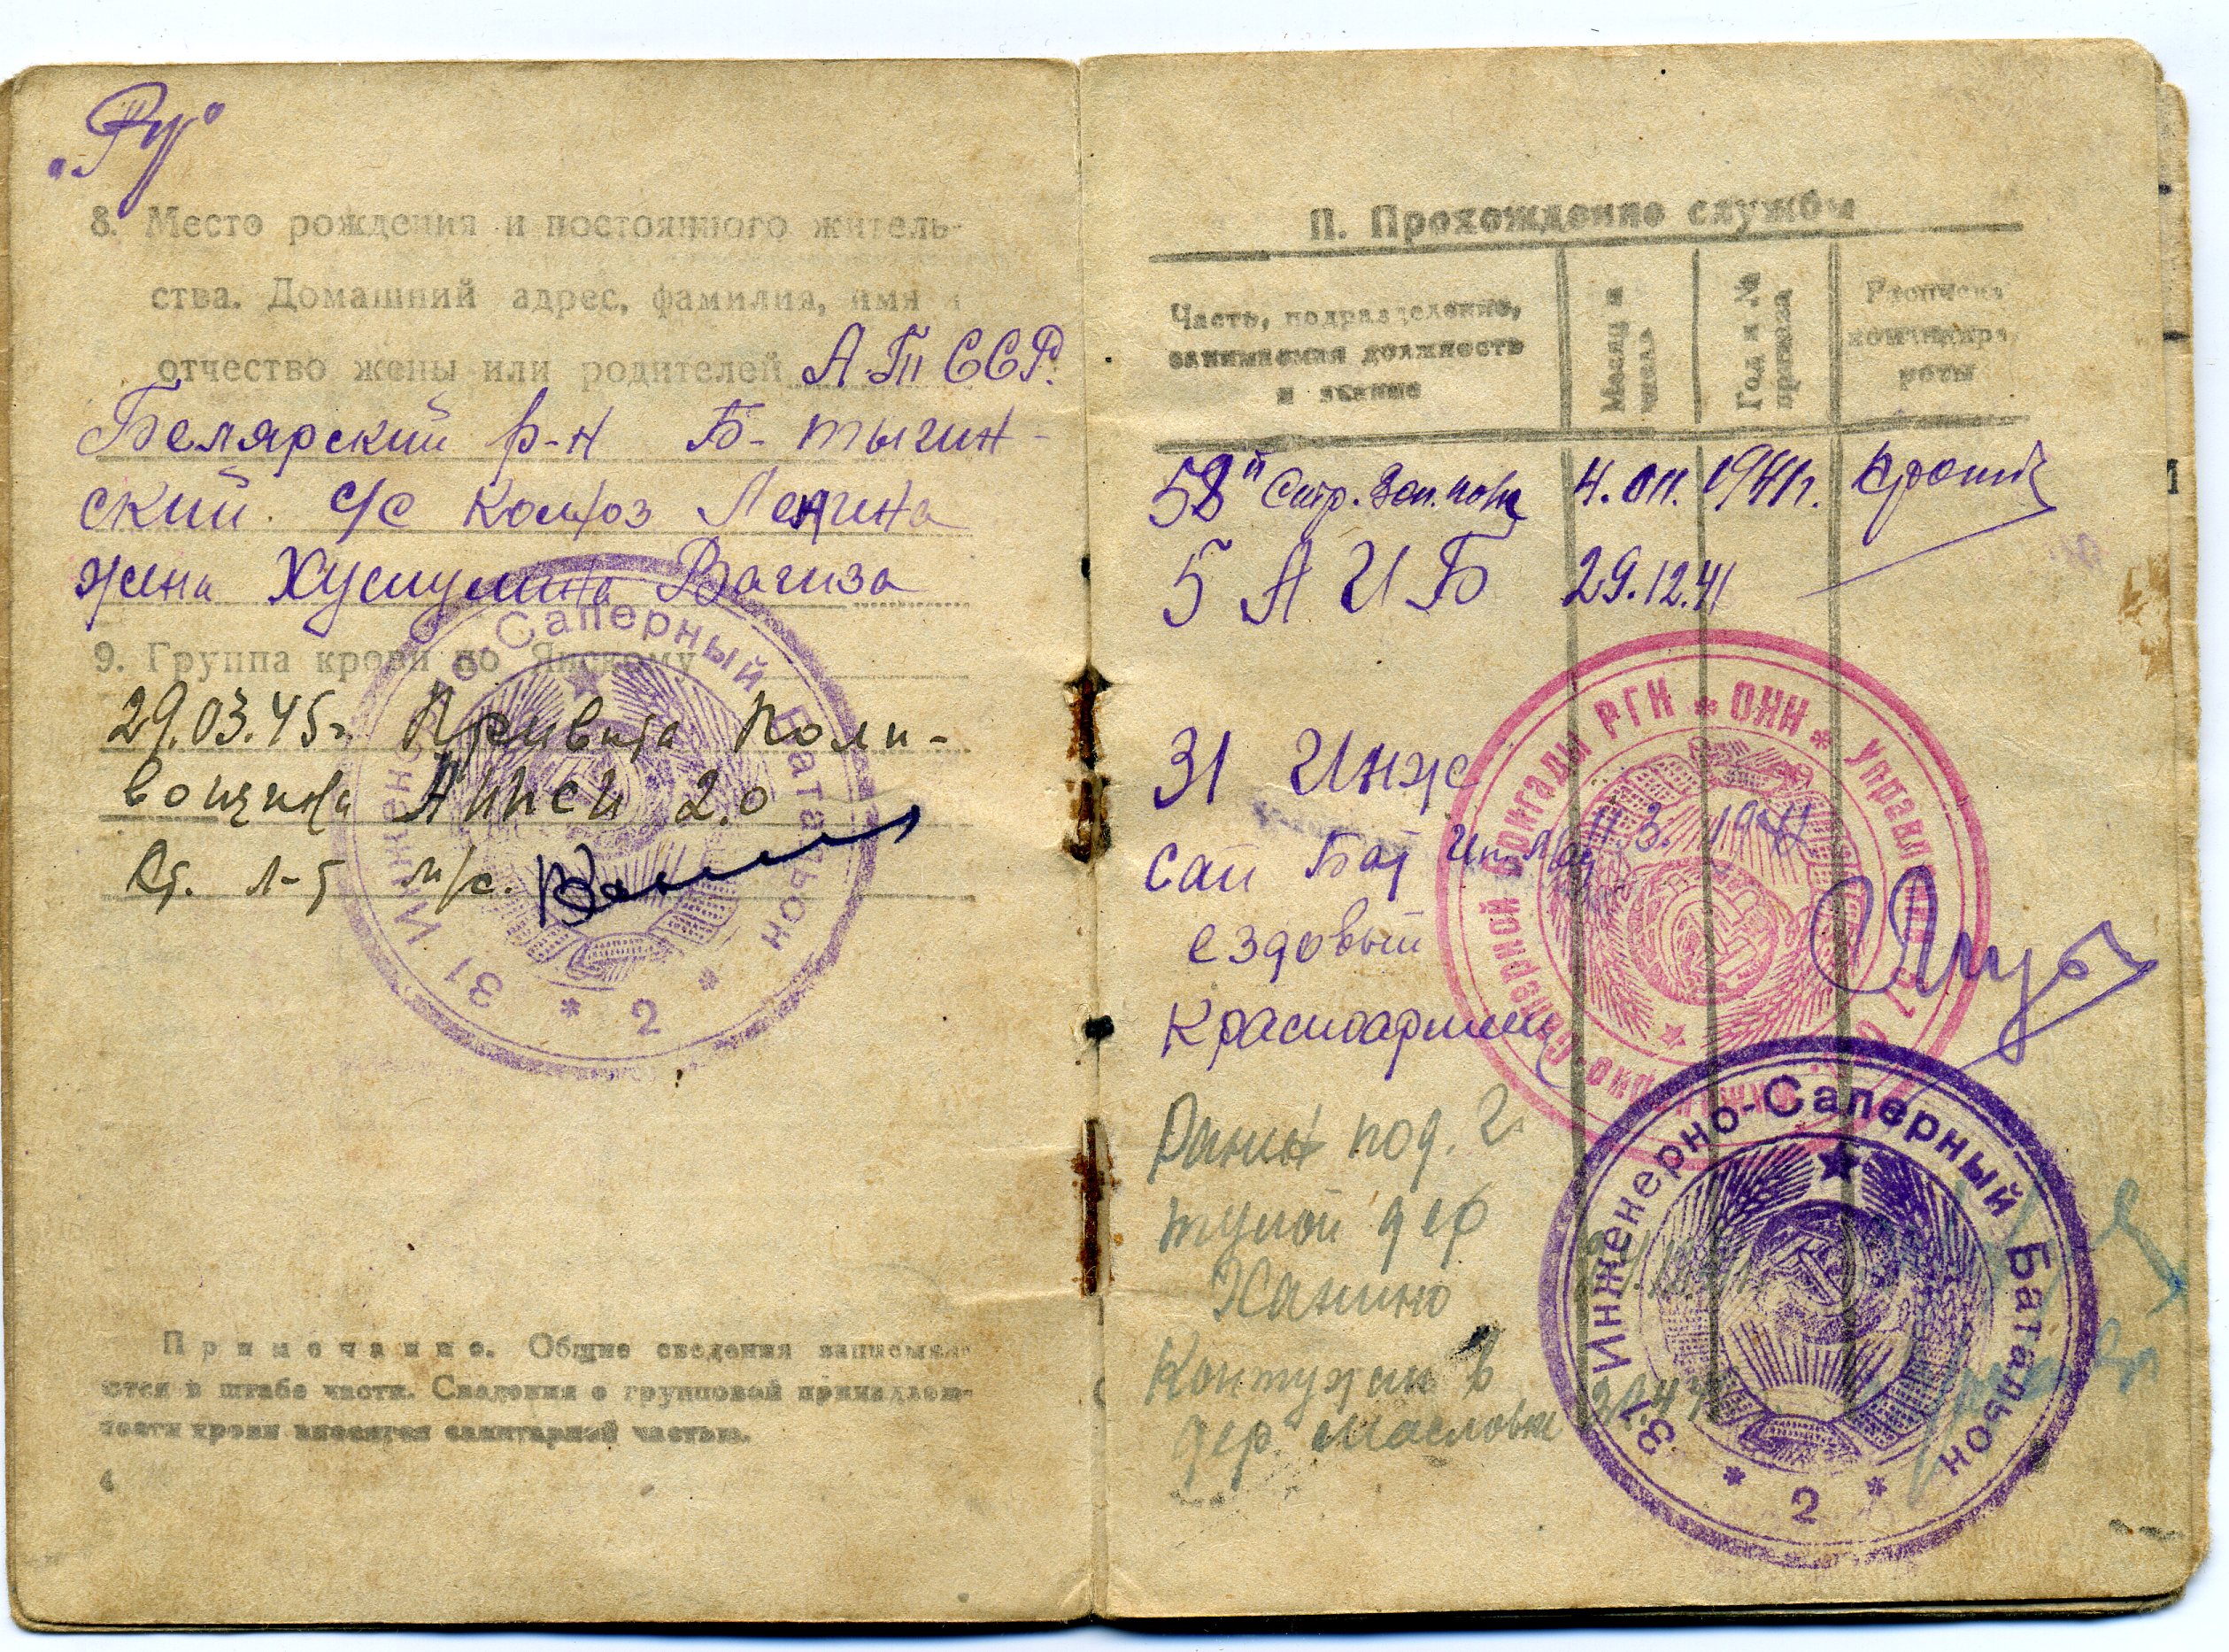 „Ру"
8. Место рождения и постоянного житель-
ства. Домашний адрес, фамилия, имя и
отчество жены или родителей А.Т ССР.
Белярский р-н Б- тыгин-
ский с/с Колхоз Ленина
жена Хуснулина Вагиза
9. Группа крови по Янскому
29.03.45г. Привита Поли-
вакцина НИИСИ 2.0
Ст. л-т м/с.
31 Инженерно-Саперный Батальон * 2 *
Примечание. Общие сведения записыва-
ются в штабе части. Сведения о групповой принадлеж-
ности крови вносятся санитарной частью.
4
П. Прохождение службы
Часть, подразделение,
занимаемая должность
и звание
Месяц и
число
Год и №
приказа
Расписка
командира
роты
58й Стр. Зап. полк 4. 1941г.
5 А И Б 29.12.41
31 Инж
Сап Бат
ездовый
Красноармеец
Ранен под. г.
тулой дер
Ханино
Контужен в
дер. Масловка
бригады РГК * ОНИ * Управление
31 Инженерно-Саперный Батальон * 2 *